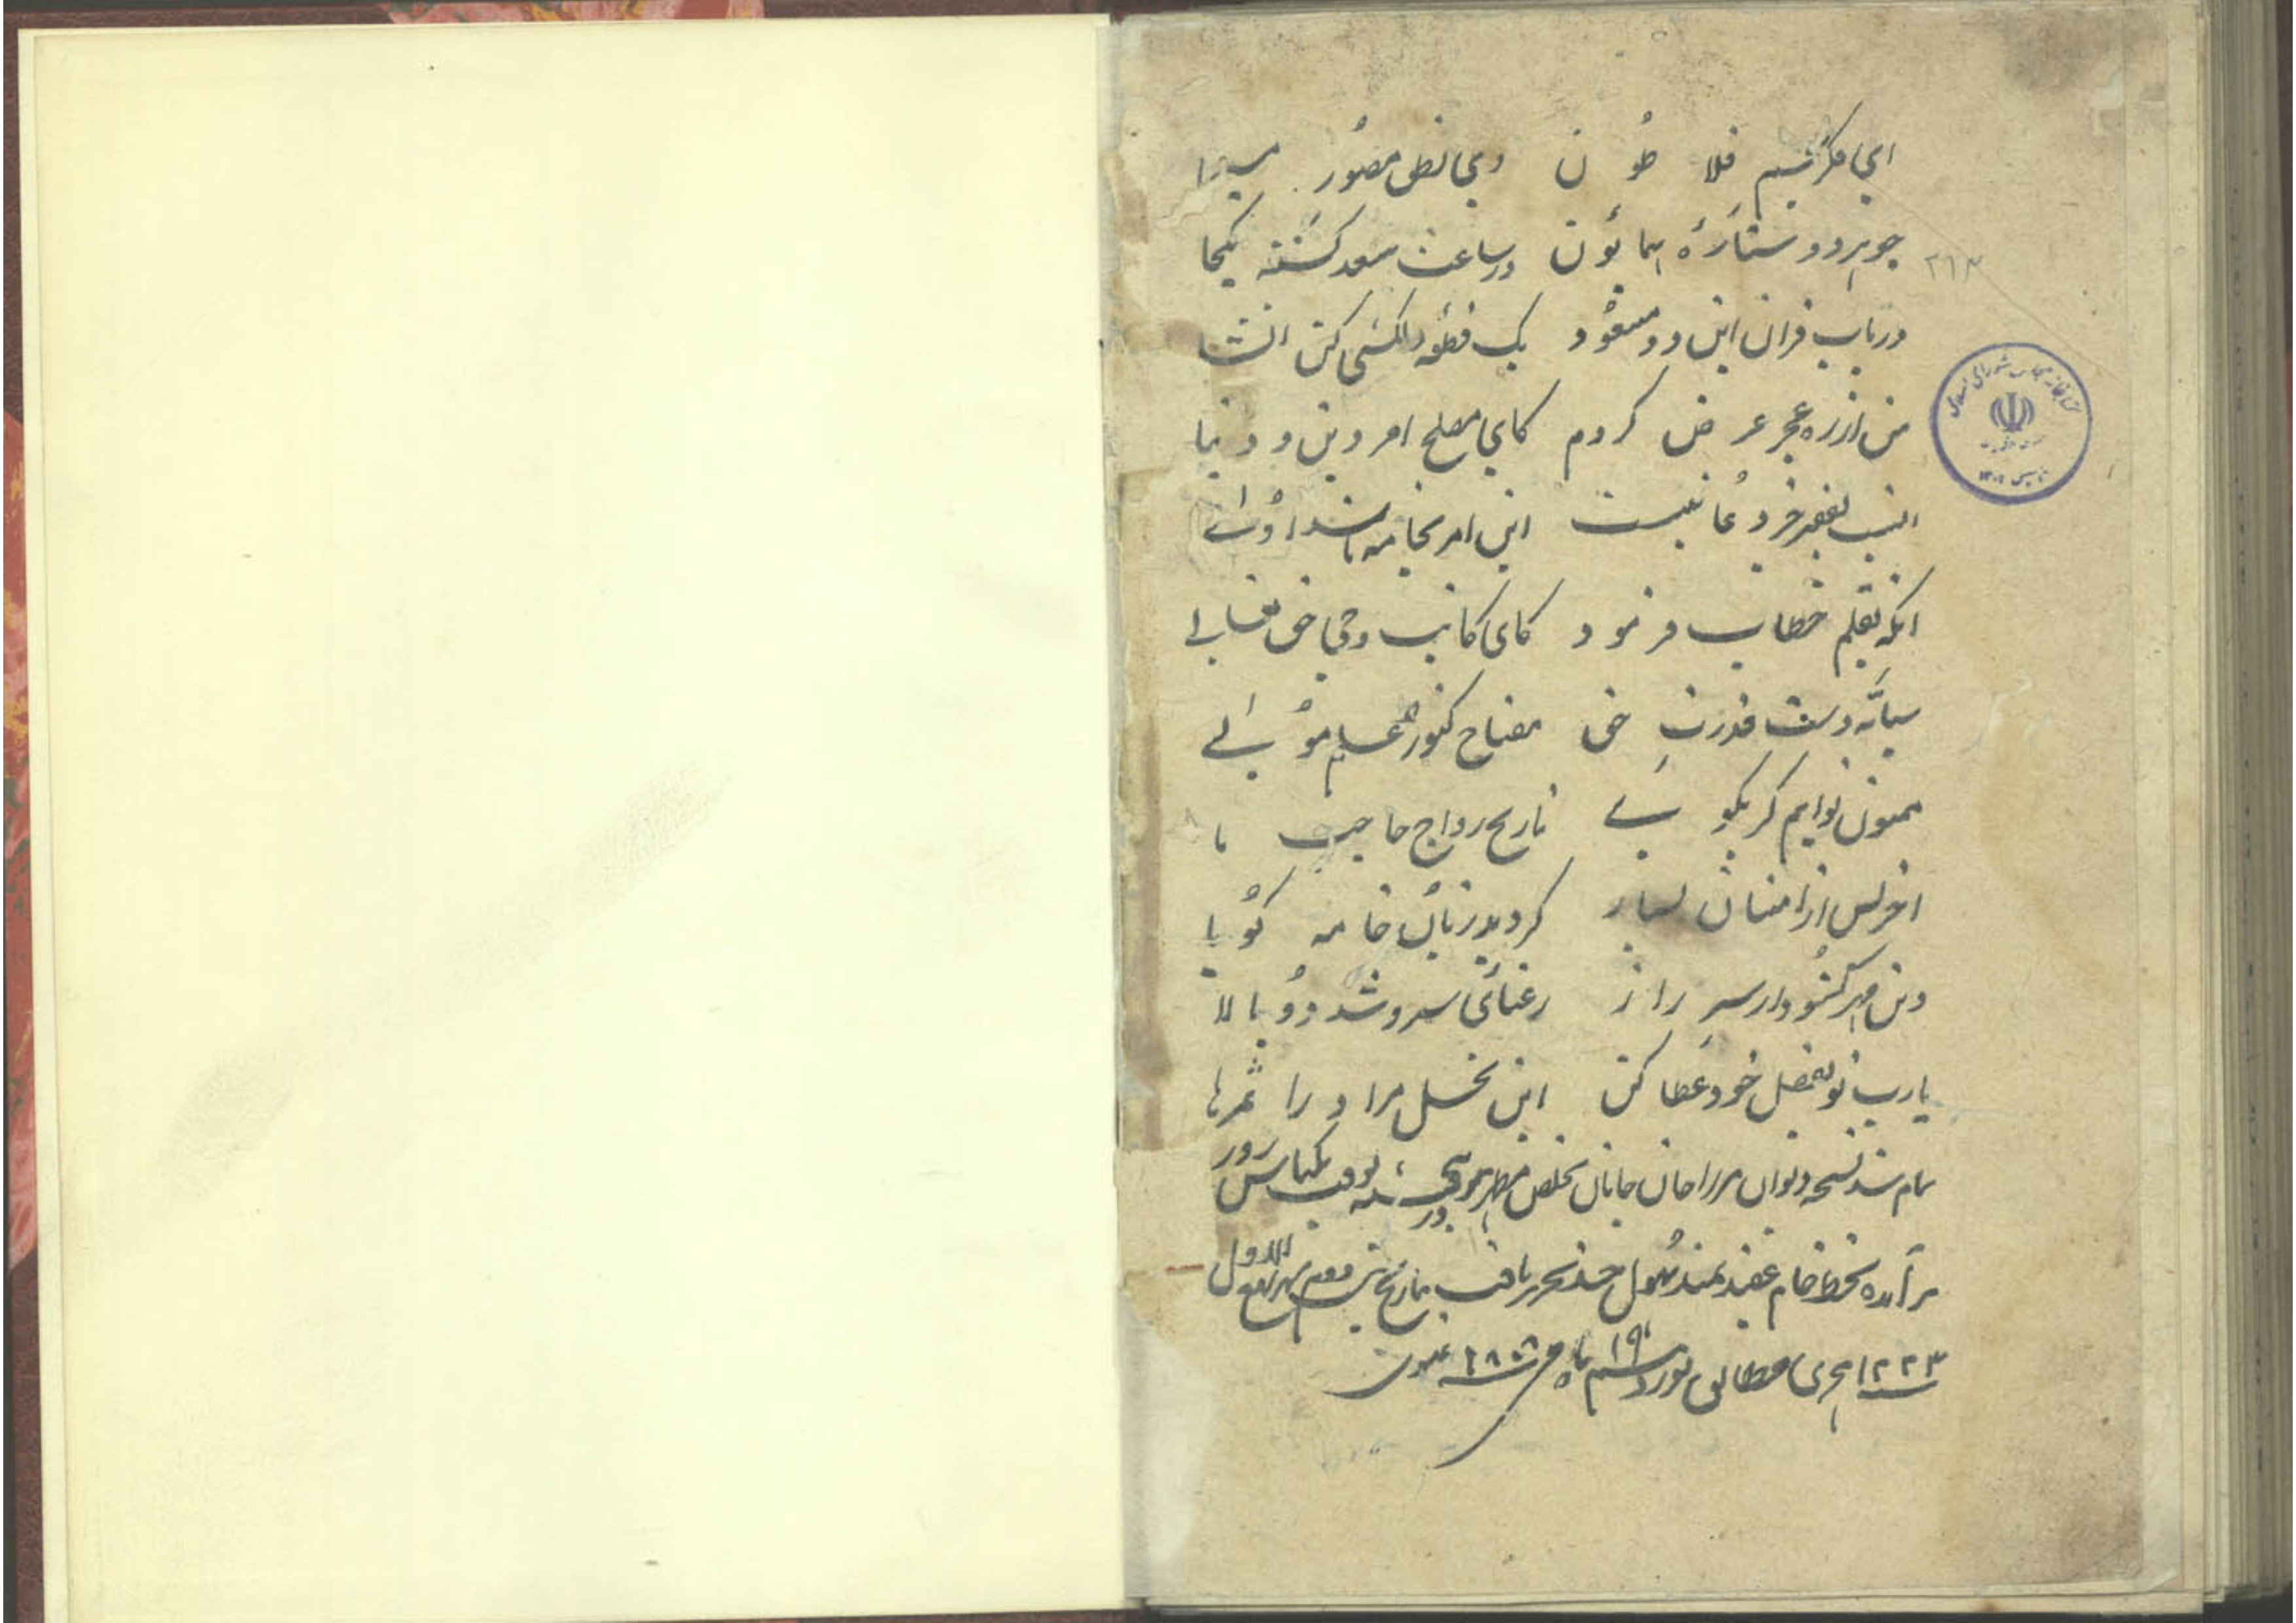 ای فکر فلاطون وی نطق مصور
چو مهر دو ستارۀ همایون در ساعت سعد گشته یکجا
در باب قران این دو مسعود یک قطعه دلکش کن انشا
من از ره عجز عرض کردم کای مصلح امر دین و دنیا
انسب بفقیر جز دعا نیست این امر بخامه باشد اولے
انگه بقلم خطاب فرمود کای کاتب وحی حق تعالے
سبابه دست قدرت حق مفتاح کنوز علم مولے
ممنون توایم گر بگویے تاریخ رواج حاجت ما
اخر پس از امتنان بسیار گردید زبان خامه گویا
وین مهر گشود از سر راز رعنائی سرو شد دو بالا
یارب تو بفضل خود عطا کن این نخل مراد را ثمرها
تمام شد نسخه دیوان مرزا جان جانان تخلص مظهر بوقت یکپاس روز
برآمده بخط خام تحریر یافت بتاریخ
سنه ۱۲۲۳ هجری مطابق نوزدهم ۱۹ ماه سنه ۱۸۰۸ عیسوی
۲۱۳
کتابخانه مجلس شورای اسلامی